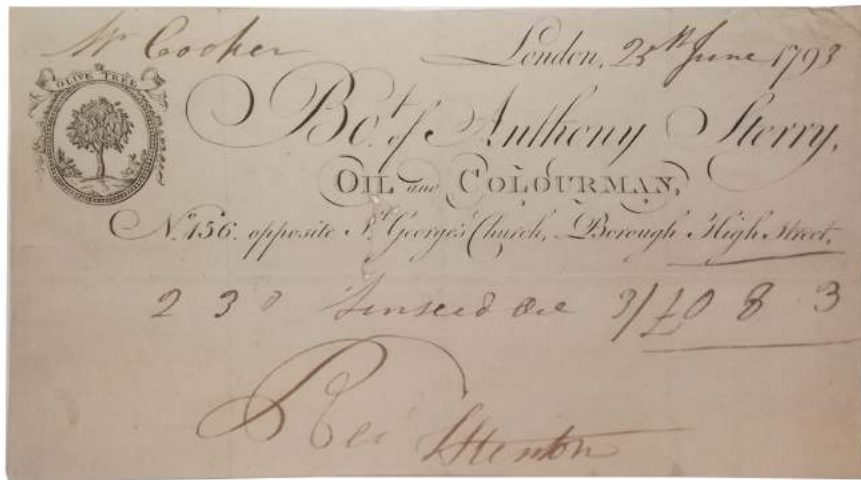 Mr Cooker
London, 25th June 1793
OLIVE TREE
Bot. of Anthony Storry,
OIL and COLOURMAN,
No. 156. opposite St. George's Church, Borough High Street.
2 3 0 Linseed Oil 3/ £0 8 3
Rec